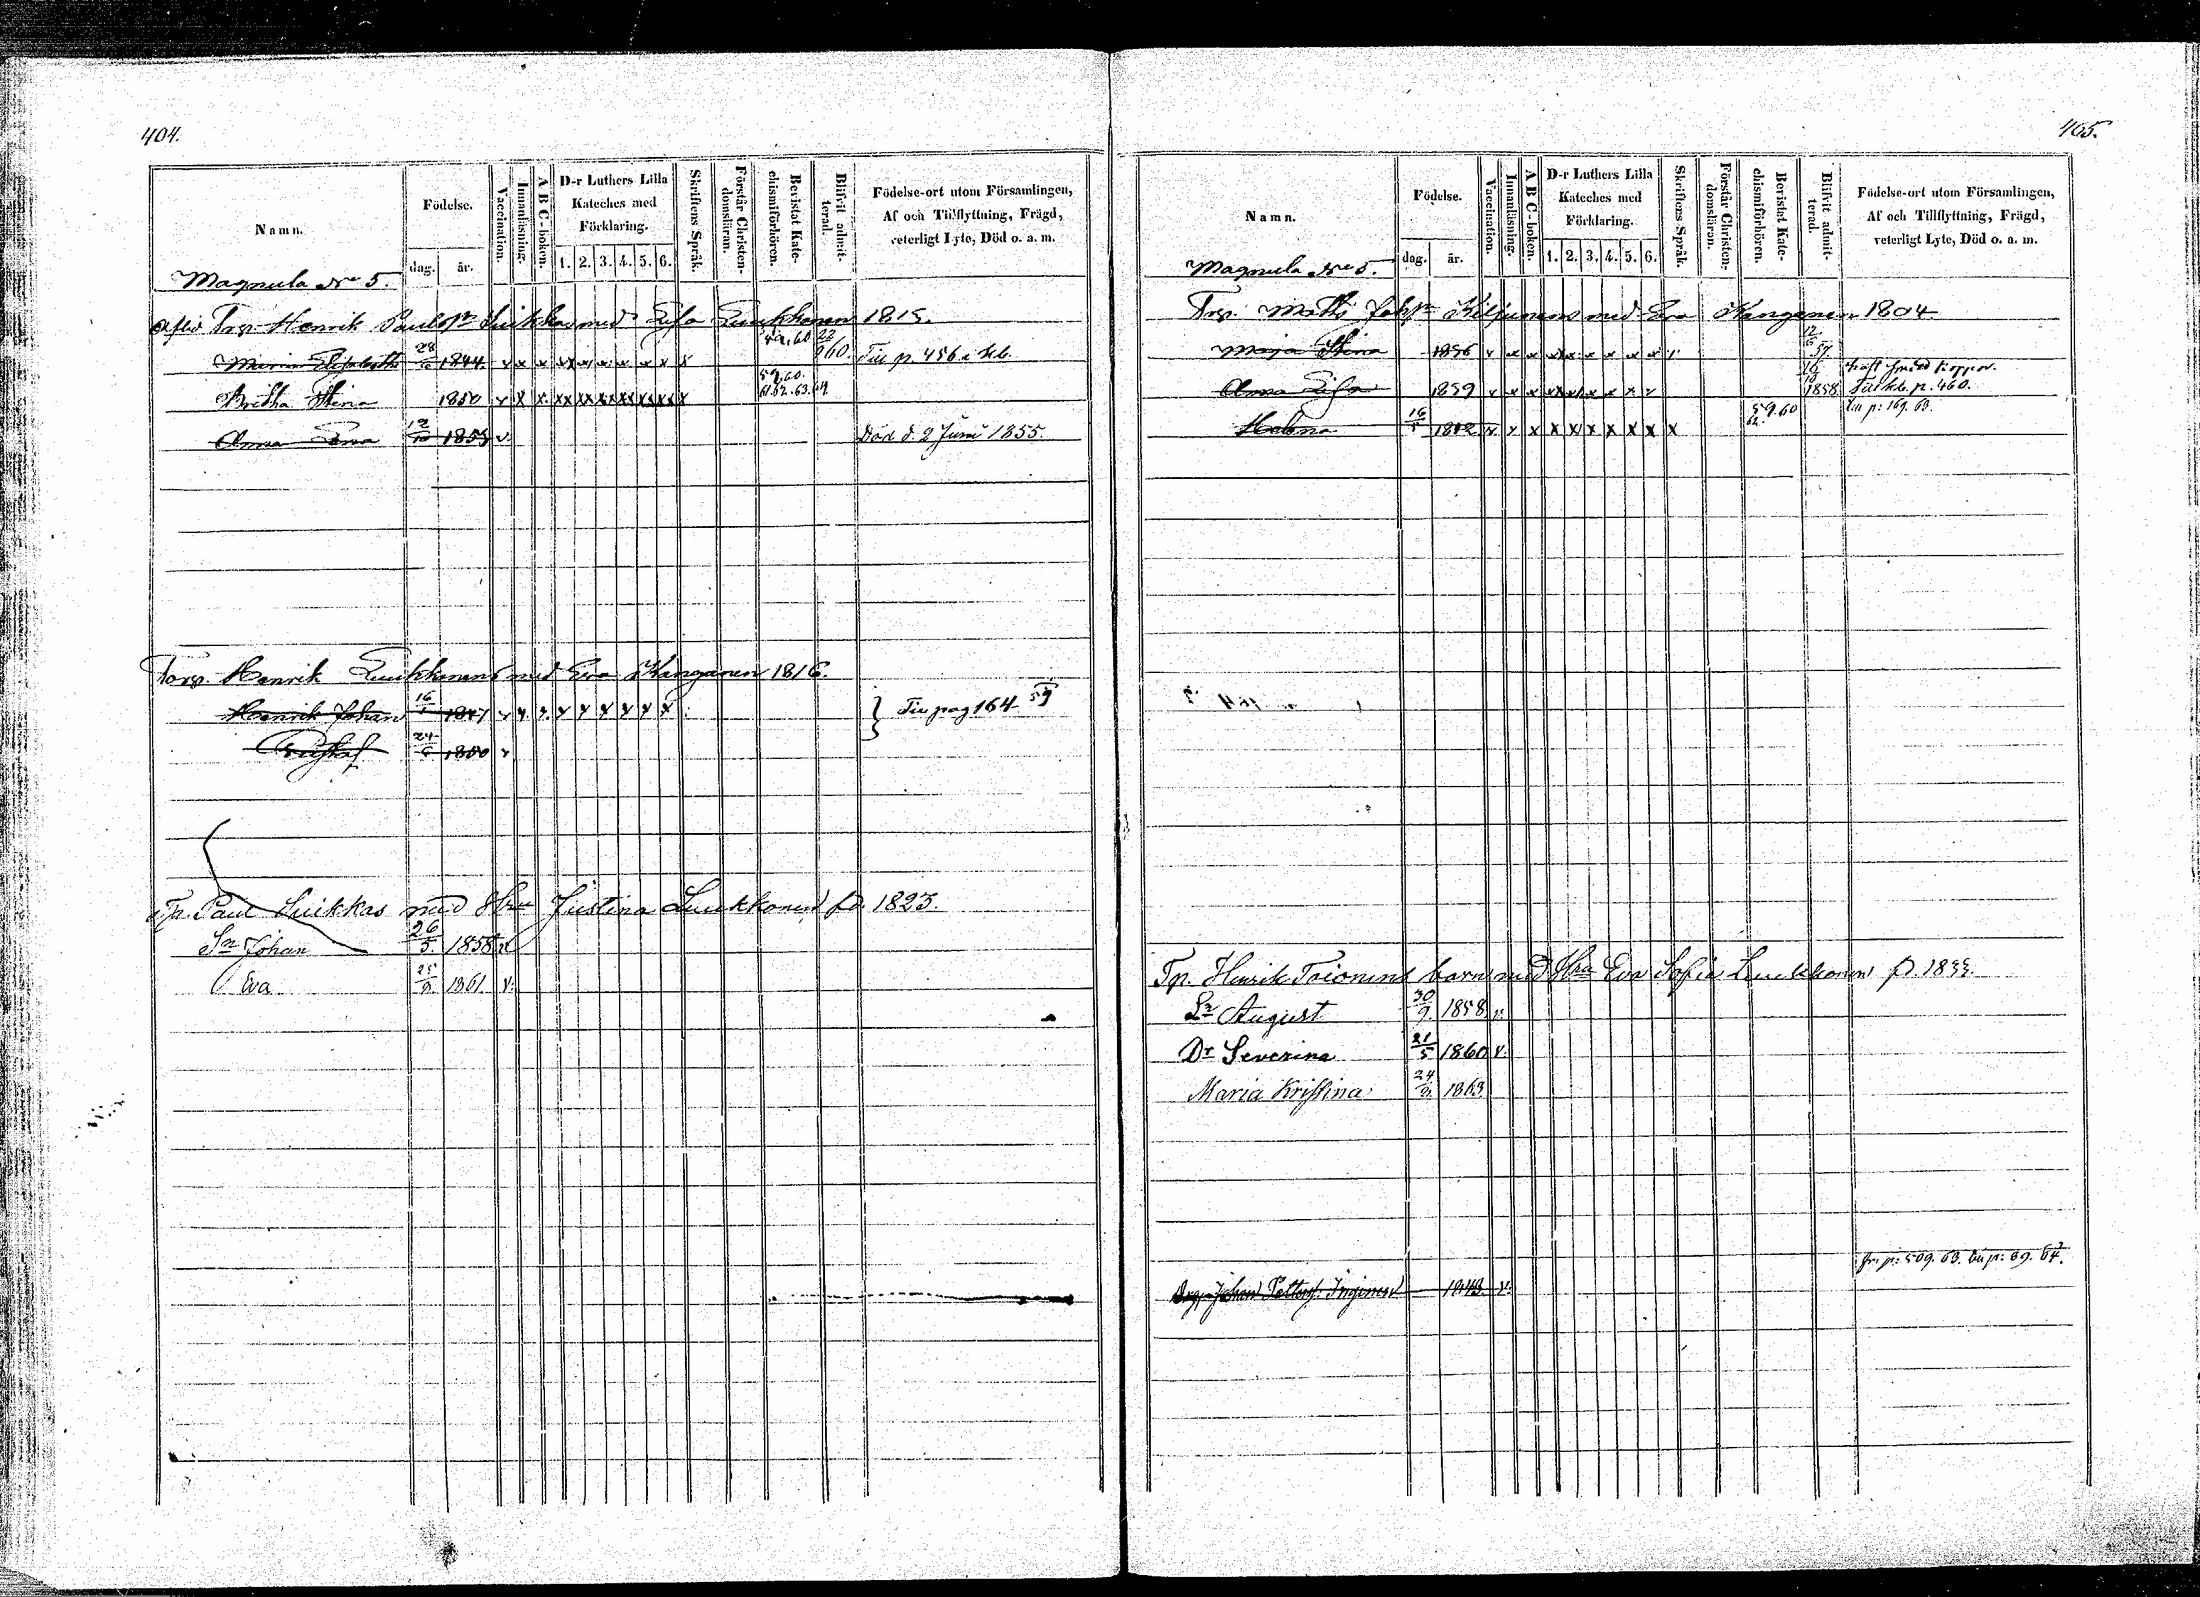 404.
Namn. Födelse. dag. år. Vaccination. Innanläsning. A B C-boken. D-r Luthers Lilla Kateches med Förklaring. 1. 2. 3. 4. 5. 6. Skriftens Språk. Förstår Christendomsläran. Bevistat Katechismiförhören. Blifvit admitterad. Födelse-ort utom Församlingen, Af och Tillflyttning, Frägd, veterligt Lyte, Död o. a. m.
Magnula No 5.
Torp. Henrik Paulsr Suikkas med Lisa Luukkonen 1815.
Maria Elisabeth 28 1844. v x x x x x x x x x 59.60 22 860. Tu p. 456 i kb.
Britha Stina 1850 v x x xx xx xx xx xx xx x 59.60. 61.62.63.64.
Anna Eva 12/10 1853 v. Död d. 2 Juni 1855.
Torp. Henrik Luukkonens med Eva Kanganen 1816.
Henrik Johan 16/1 1847 v x x x x x x x x } Tu pag 164 59
24/6 1850 v
Tp. Paul Suikkas med Hru Justina Luukkonen fd. 1823.
Sn Johan 26/5. 1858 v
Eva 25/9 1861. v.
465.
Namn. Födelse. dag. år. Vaccination. Innanläsning. A B C-boken. D-r Luthers Lilla Kateches med Förklaring. 1. 2. 3. 4. 5. 6. Skriftens Språk. Förstår Christendomsläran. Bevistat Katechismiförhören. Blifvit admitterad. Födelse-ort utom Församlingen, Af och Tillflyttning, Frägd, veterligt Lyte, Död o. a. m.
Magnula No 5.
Trp. Matts Johsr Kiljunens med Eva Kanganen 1804
Maja Stina 1836 v x x x x x x x x 12/6 57.
Anna Lisa 1839 v x x x x x x x v 16/10 1858 haft koppor. p. 460.
Helena 16/5 1842 v v x x x x x x x x 59.60 62. tu p: 169. 63.
Tp. Henrik Toionens barn med Hru Eva Sofia Luukkonen fd. 1833.
Sn August 30/9. 1858. v.
Dr Severina 21/5 1860 v.
Maria Kristina 24/9. 1863
fr. p: 509. 63. tu p: 39. 64.
Johan Petters. Inginen 1843. v.